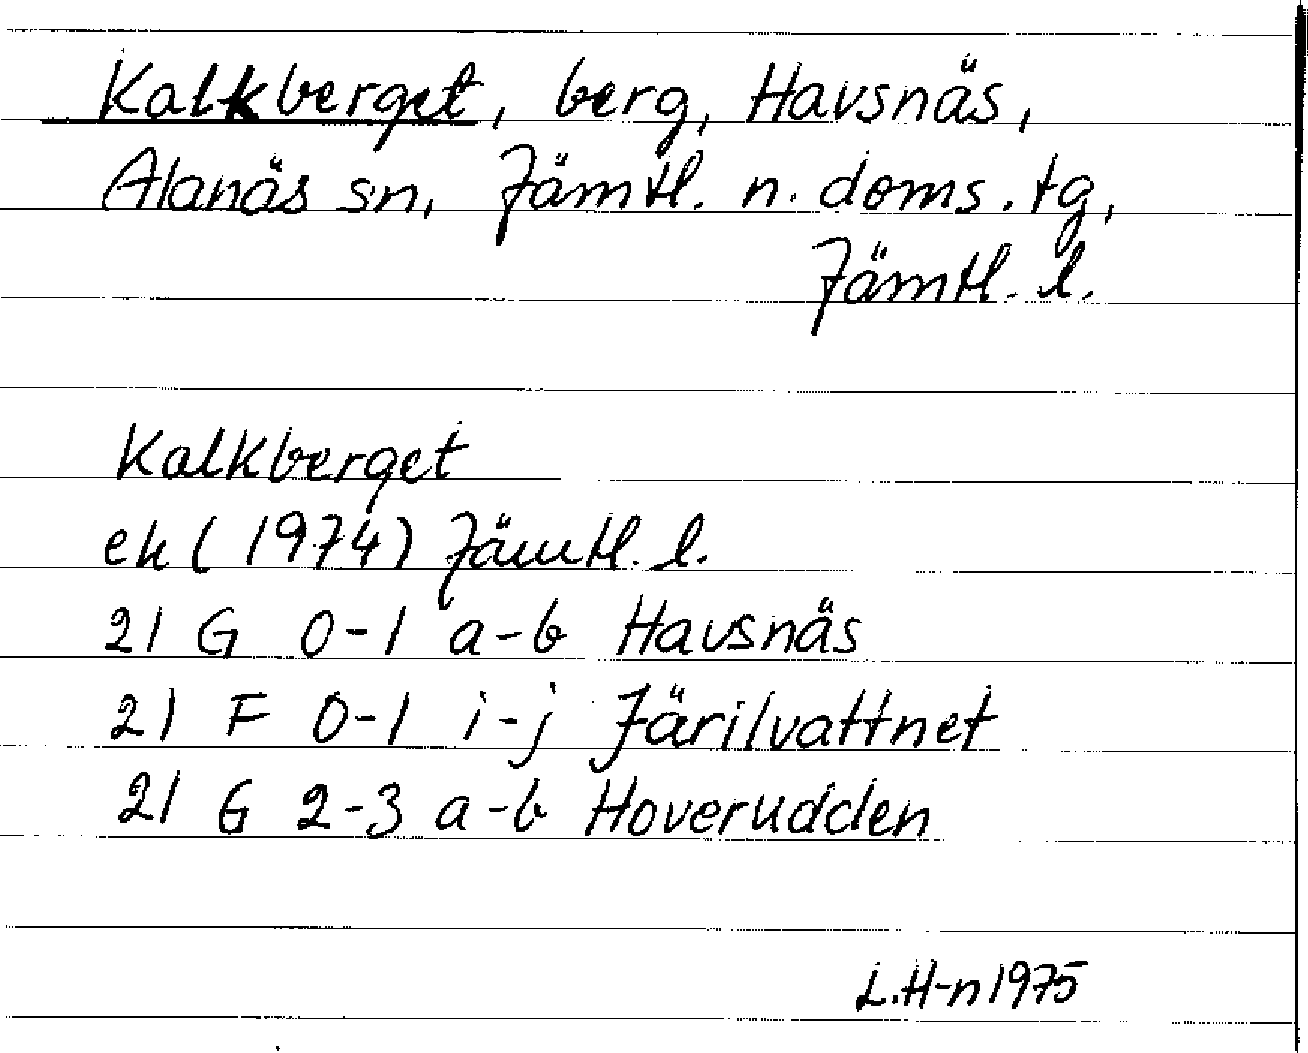 Kalkberget, berg, Havsnäs,
Alanäs sn, Jämtl. n. doms. tg,
Jämtl. l.
Kalkberget
ek (1974) Jämtl. l.
21 G 0-1 a-b Havsnäs
21 F 0-1 i-j Järilvattnet
21 G 2-3 a-b Hoverudden
L.H-n 1975